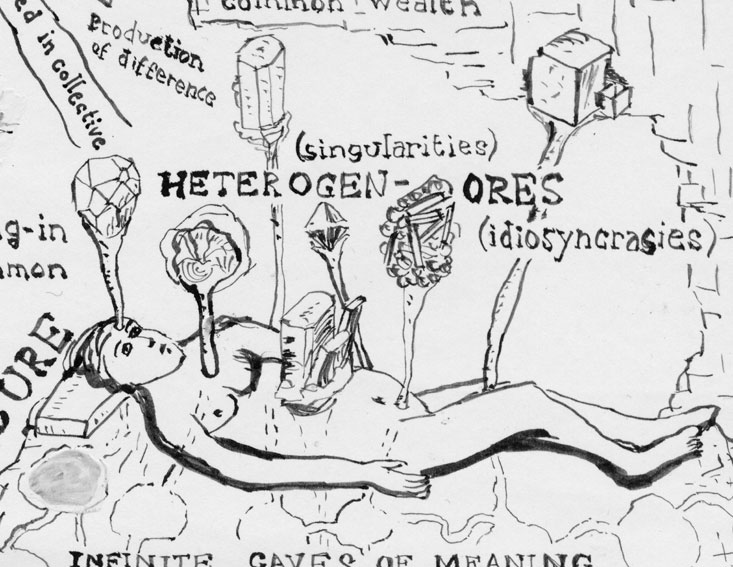 common wealth
ed in collective
production
of difference
(singularities)
HETEROGEN- ORES
(idiosyncrasies)
g-in
mmon
URE
INFINITE CAVES OF MEANING